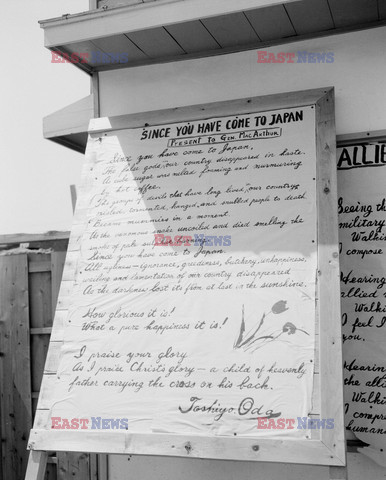 EAST NEWS EAST NEWS
SINCE YOU HAVE COME TO JAPAN
PRESENT TO GEN. MACARTHUR
Since you have come to Japan,
The false gods, our country disappeared in haste.
As cube sugar was melted foaming and murmuring
in hot coffee.
The group of devils that have long lived, our country
cried, tormented, hanged, and smelled people to death
Became mummies in a moment.
As the venomous snake uncoiled and died smelling the
smoke of
Since you have come to Japan.
All ugliness – ignorance, greediness, butchery, unhappiness,
wailing and lamentation of our country disappeared
As the darkness lost its from at last in the sunshine.
How glorious it is!
What a pure happiness it is!
I praise your glory
As I praise Christ's glory – a child of heavenly
father carrying the cross on his back.
Toshiyo Oda
ALLIE
Seeing the
military
Walki
compose
Hearing
allied
Walk
you,
I feel J
Hearing
the alli
Walki
compr
I feel
EAST NEWS
EAST NEWS EAST NEWS